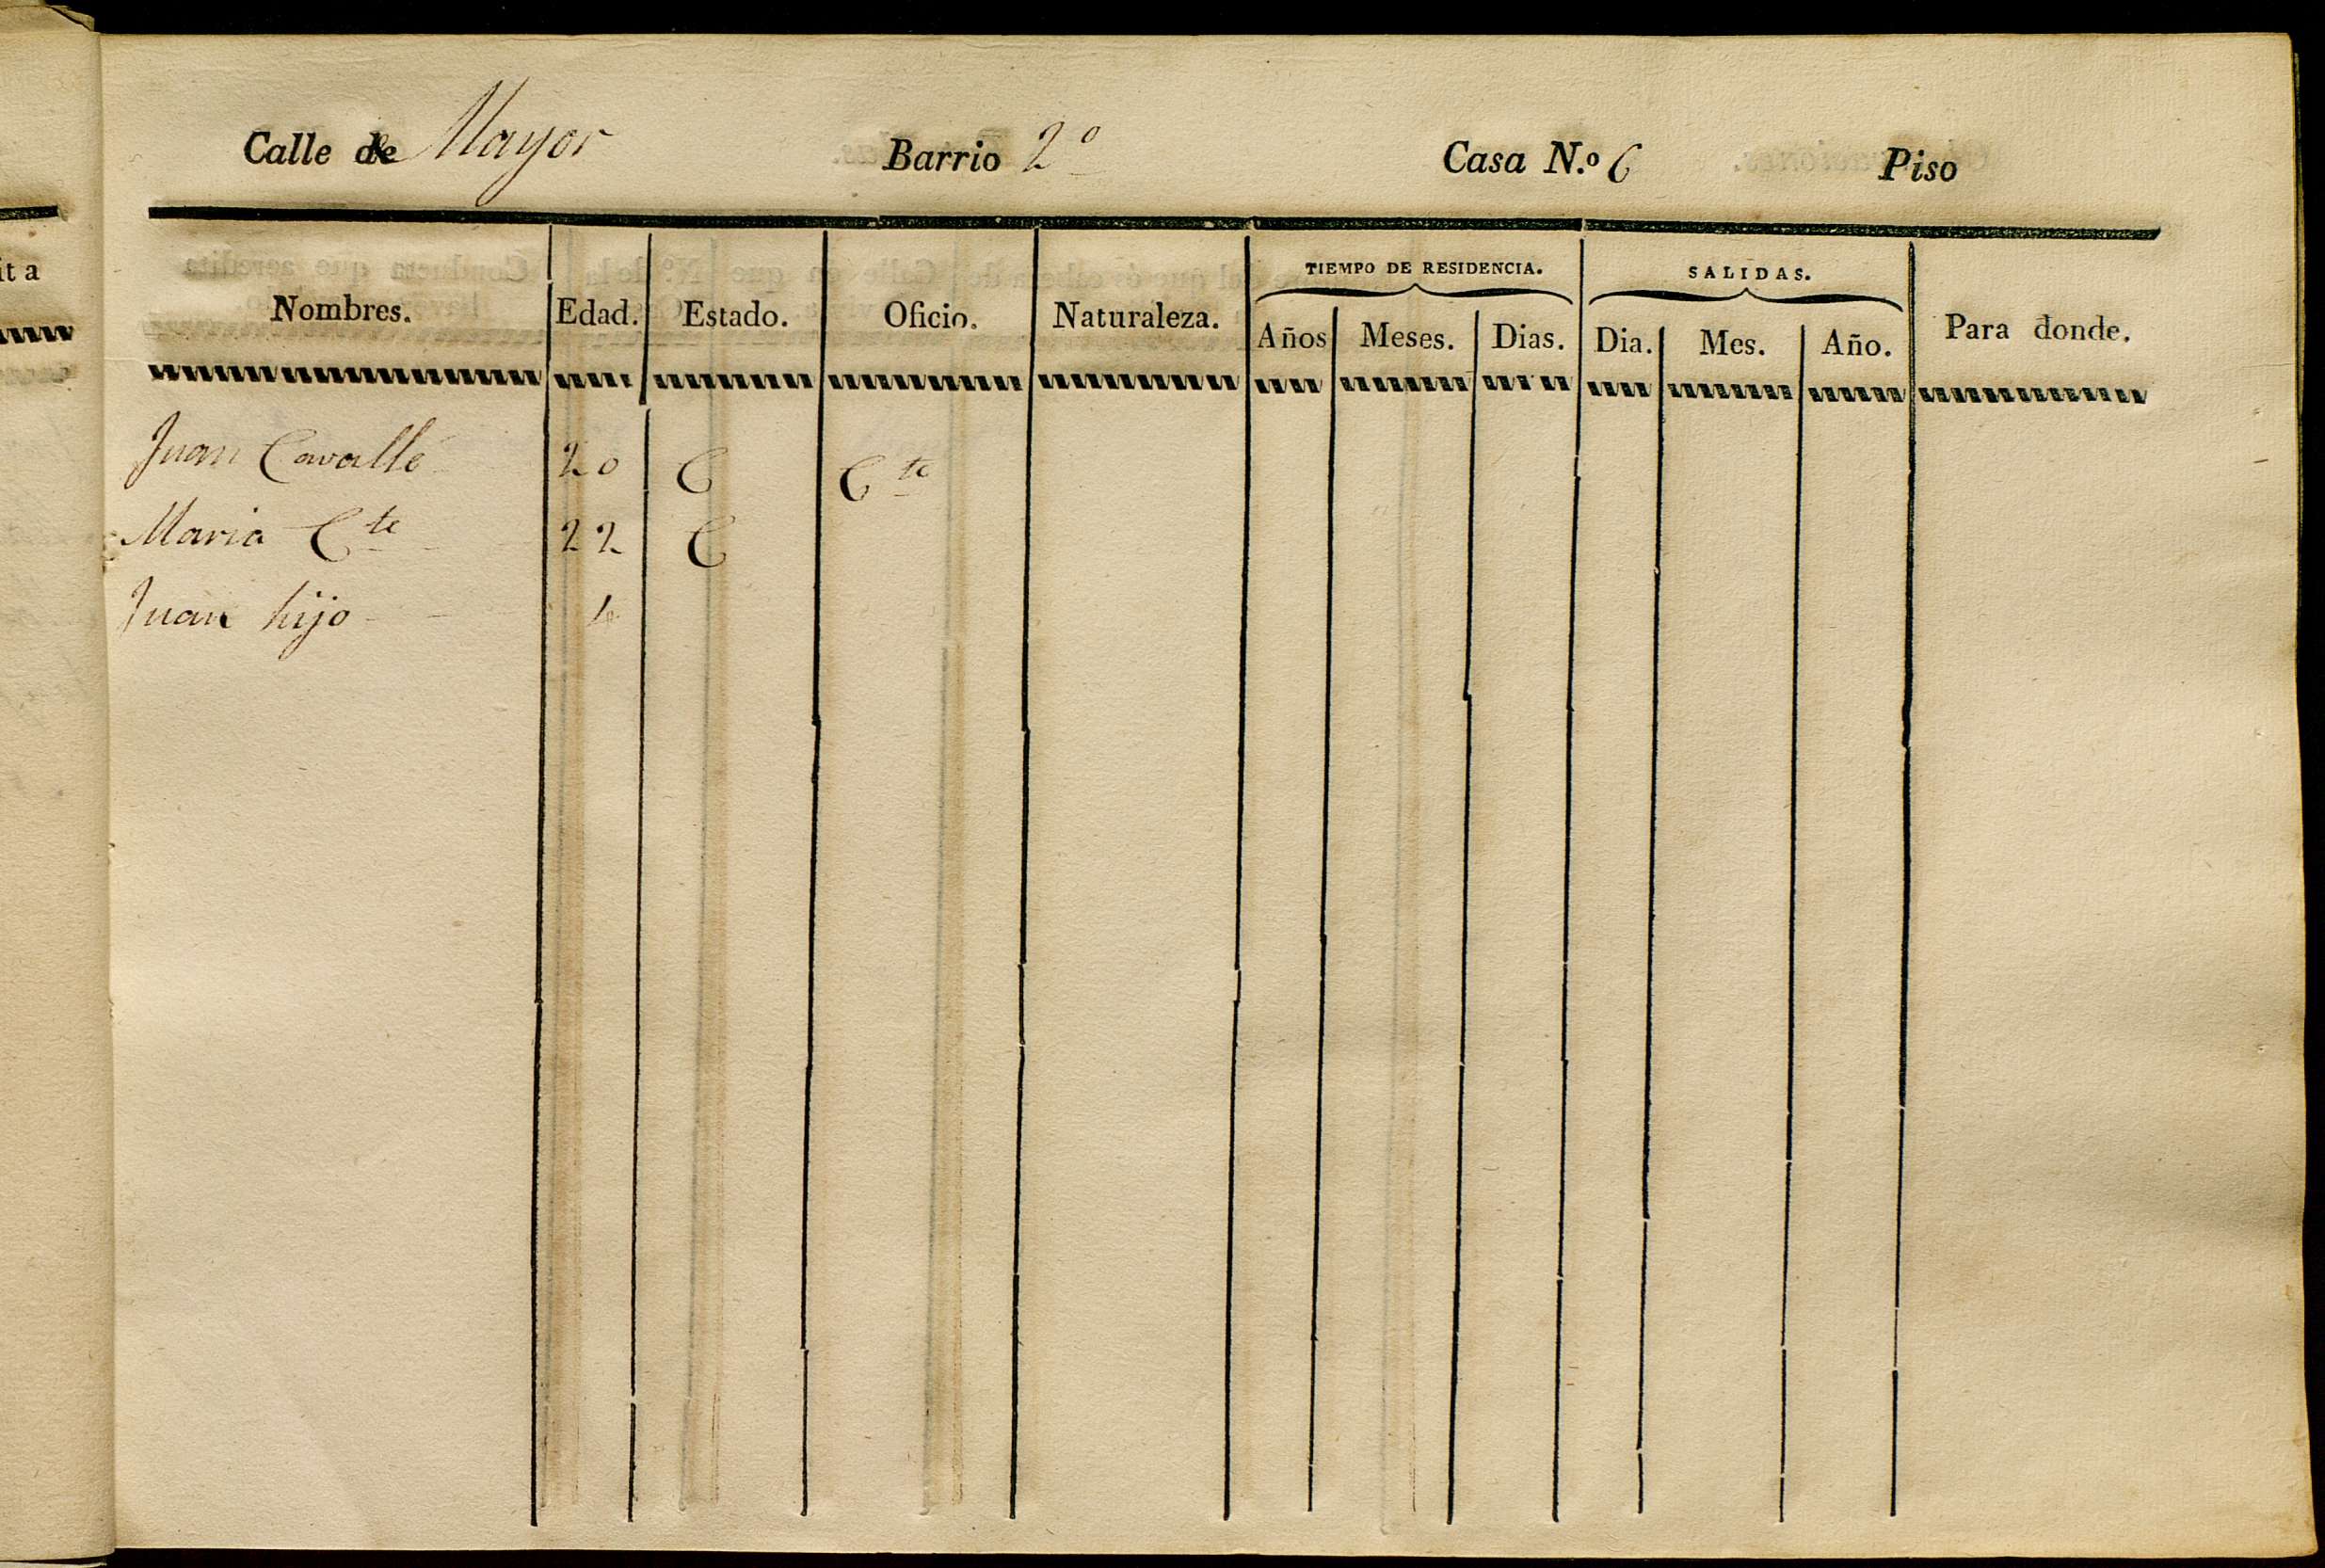 Calle de Mayor Barrio 2º Casa N.º 6 Piso
it a
TIEMPO DE RESIDENCIA. SALIDAS.
Nombres. Edad. Estado. Oficio. Naturaleza. Años Meses. Dias. Dia. Mes. Año. Para donde.
Juan Cavallé 20 C Cte
Maria Cte 22 C
Juan hijo 4